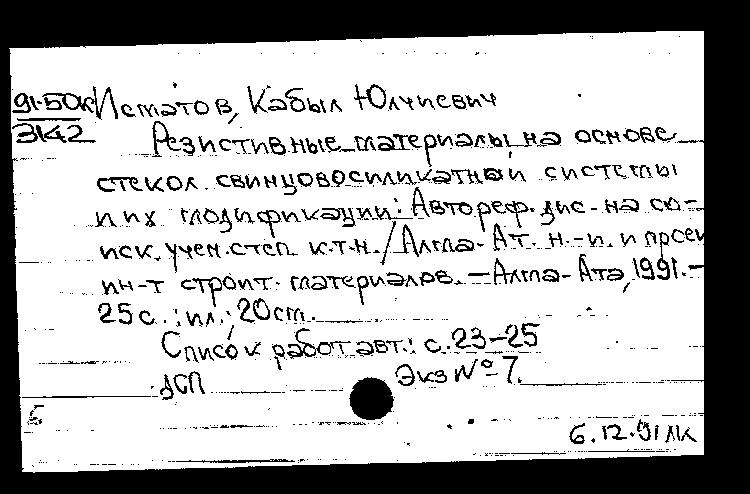 91-50к Исматов, Кабыл Юлчиевич
3142
Резистивные материалы на основе
стекол свинцовосиликатной системы
и их модификации: Автореф. дис. на со-
иск. учен. степ. к.т.н. / Алма-Ат. н.-и. и проек
ин-т строит. материалов. — Алма-Ата, 1991. —
25 с.: ил.; 20 см.
Список работ авт.: с. 23-25
ДСП Экз № 7.
Б
6.12.91 ЛК